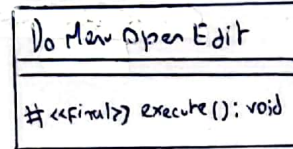 Do Menu Open Edit
# <<Final>> execute(): void